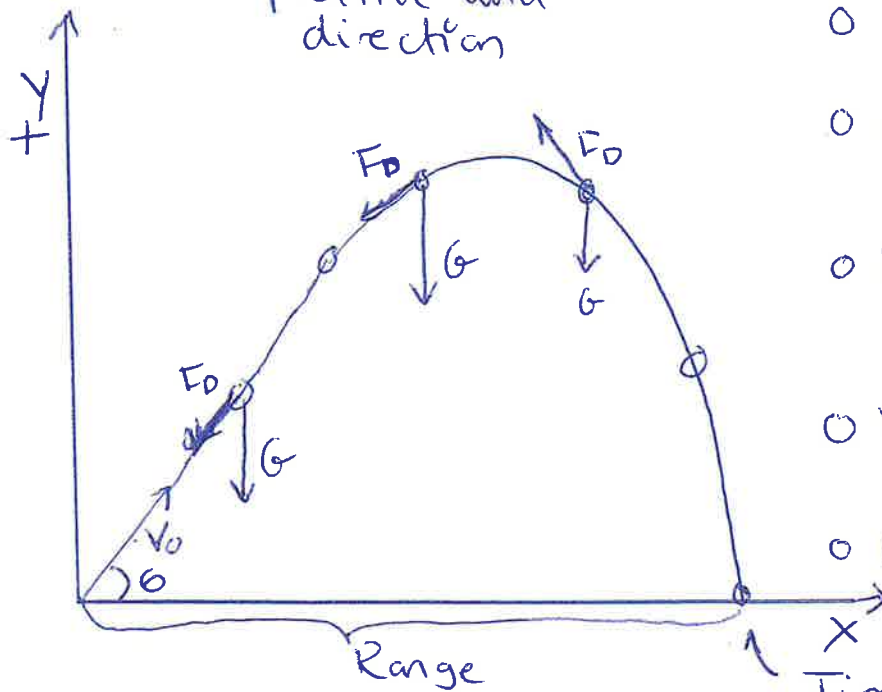 direction
Y
+
FD
FD
G
G
FD
G
V0
θ
X
Range